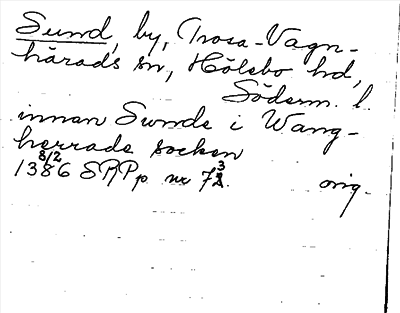 Sund, by, Trosa-Vagn-
härads sn, Hölebo hd,
Söderm. l.
innan Sunde i Wang-
herrade socken
8/2
1386 SRPp nr 73. orig.